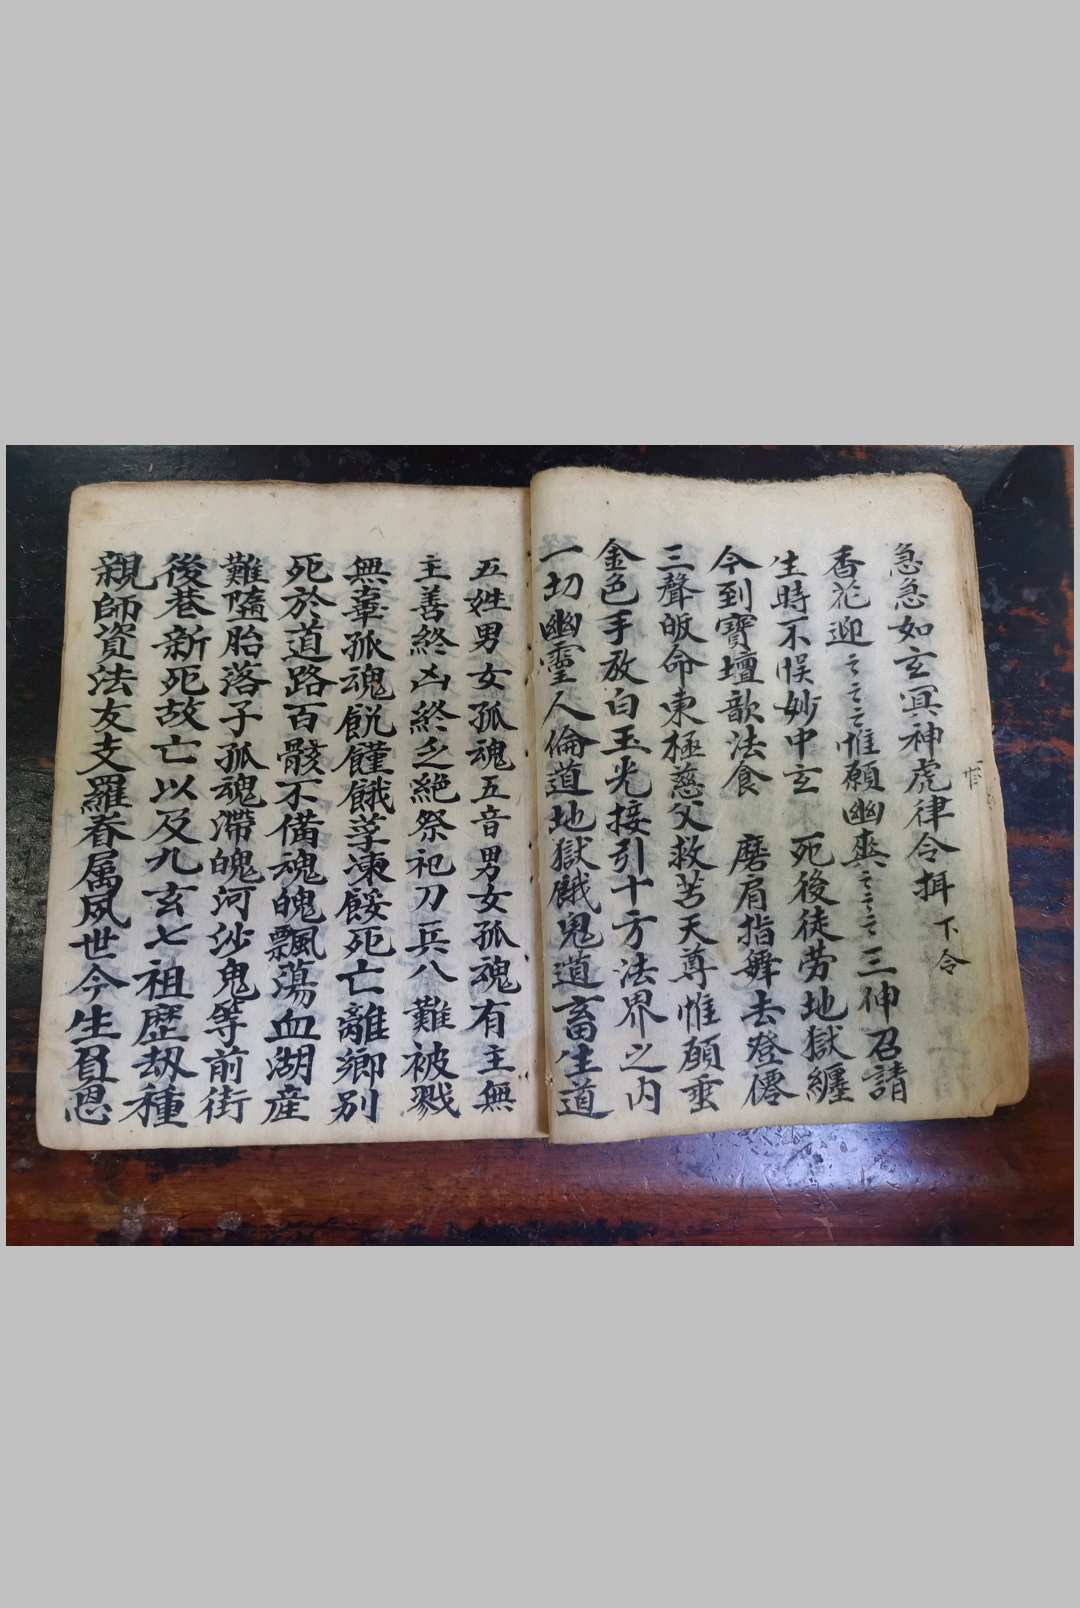 急急如玄冥神虎律令揖 下令
香花迎〻〻〻惟願幽爽〻〻〻三伸召請
生時不悮妙中玄 死後徒劳地獄纏
今到寶壇歆法食 磨肩指舞去登僊
三聲皈命東極慈父救苦天尊惟願垂
金色手放白玉光接引十方法界之内
一切幽靈人倫道地獄餓鬼道畜生道
五姓男女孤魂五音男女孤魂有主無
主善終凶終乏絶祭祀刀兵八難被戮
無辜孤魂飢饉餓莩凍餒死亡離鄉别
死於道路百骸不備魂魄飄蕩血湖産
難墮胎落子孤魂滯魄河沙鬼等前街
後巷新死故亡以及九玄七祖歴刼種
親師資法友支羅眷属夙世今生負恩